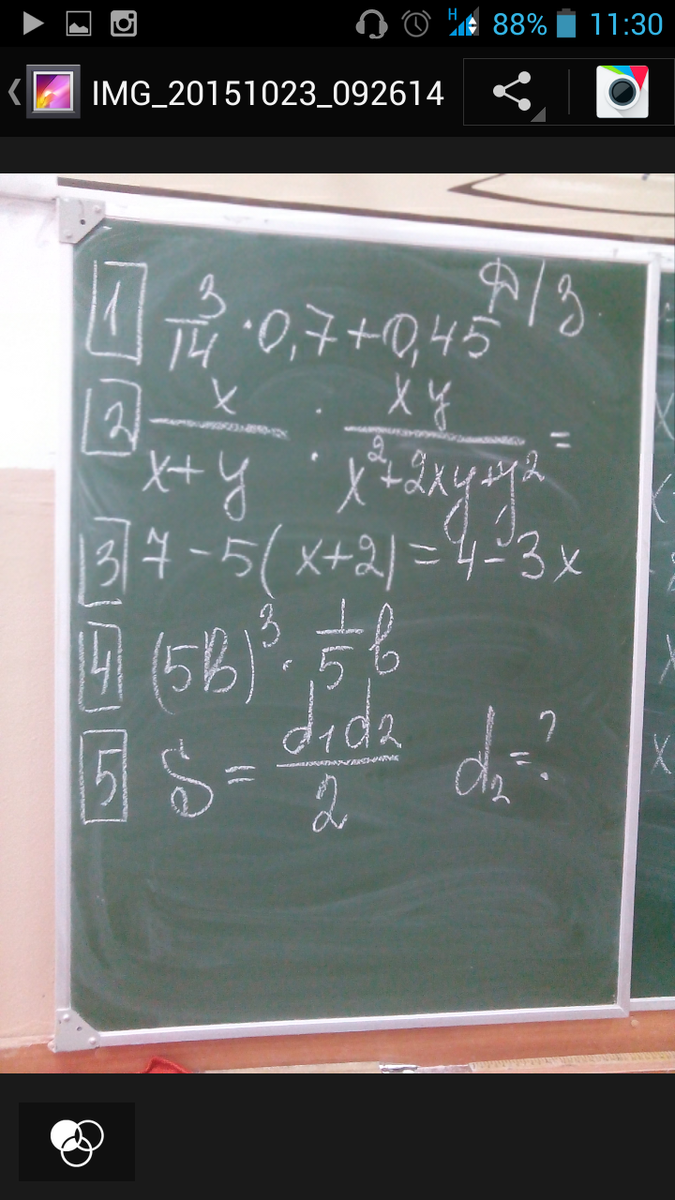 H 88% 11:30
IMG_20151023_092614
Д/З.
1 3/14 · 0,7 + 0,45
2 x/(x+y) : xy/(x²+2xy+y²) =
3 7 - 5(x+2) = 4 - 3x
4 (5b)³ · 1/5 b
5 S = d₁d₂/2 d₂ = ?